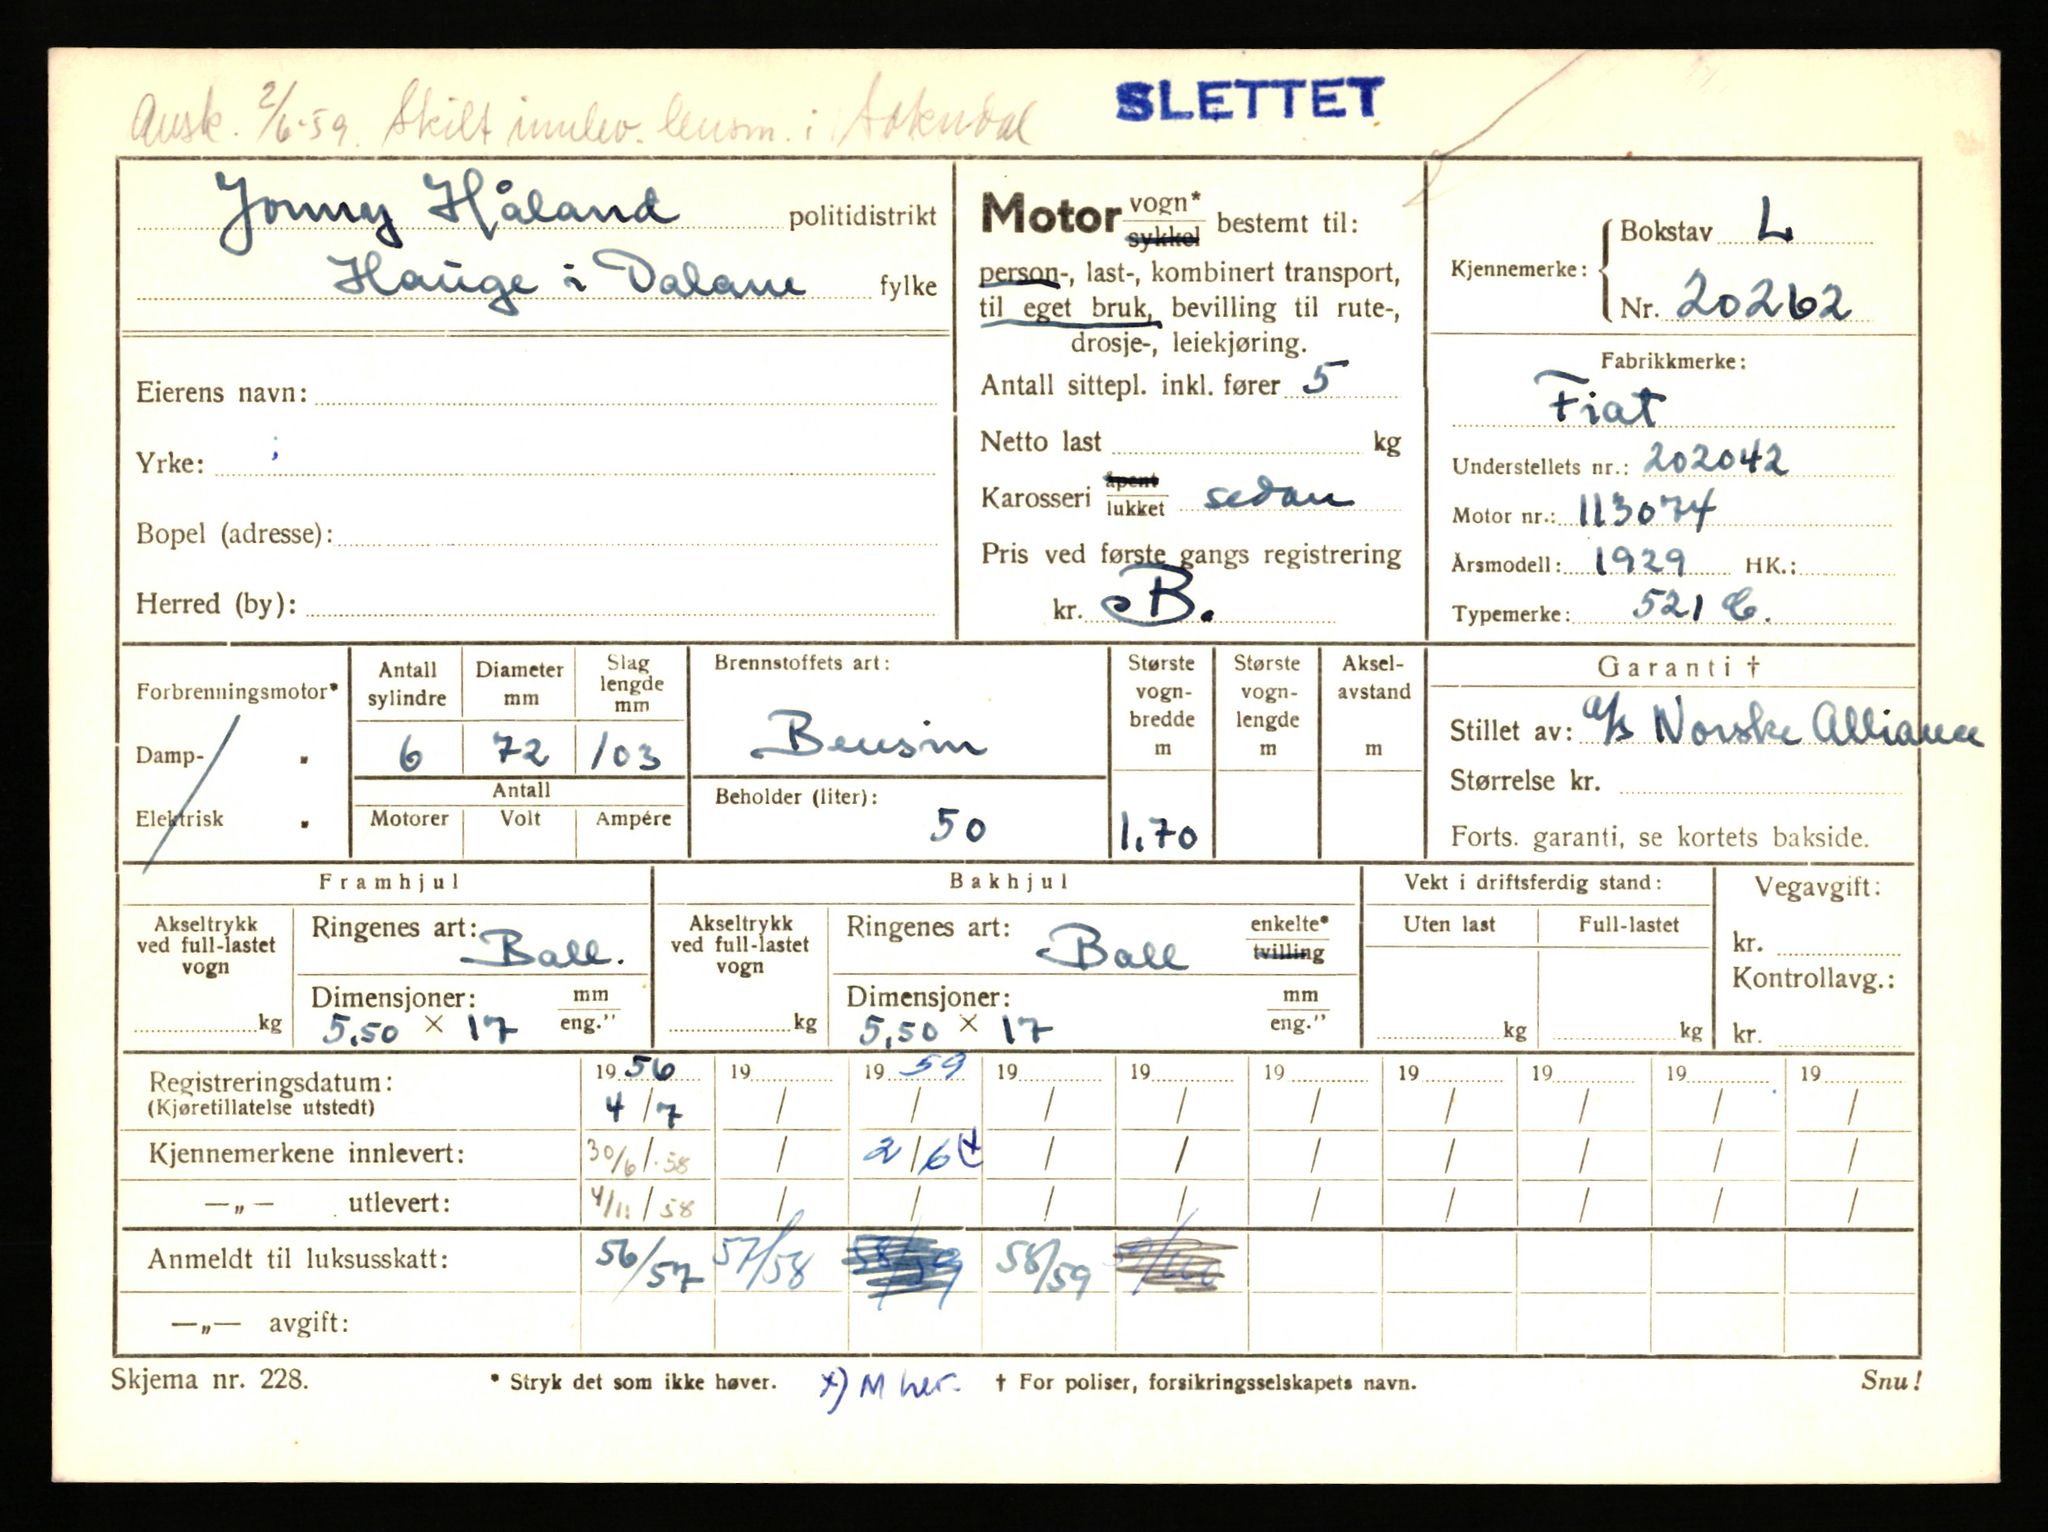 Avsk. 2/6-59. Skilt innlev. lensm. i Sokndal
SLETTET
Jonny Håland politidistrikt
Hauge i Dalane fylke
Eierens navn:
Yrke:
Bopel (adresse):
Herred (by):
Motor vogn* sykkel bestemt til:
person-, last-, kombinert transport,
til eget bruk, bevilling til rute-,
drosje-, leiekjøring.
Antall sittepl. inkl. fører 5
Netto last kg
Karosseri åpent lukket sedan
Pris ved første gangs registrering
kr. B.
Kjennemerke: Bokstav L
Nr. 20262
Fabrikkmerke:
Fiat
Understellets nr.: 202042
Motor nr.: 113074
Årsmodell: 1929 HK.:
Typemerke: 521 C.
Forbrenningsmotor*
Damp- "
Elektrisk "
Antall sylindre Diameter mm Slag lengde mm
6 72 103
Antall
Motorer Volt Ampére
Brennstoffets art:
Bensin
Beholder (liter):
50
Største vogn-bredde m
1,70
Største vogn-lengde m
Aksel-avstand m
Garanti †
Stillet av: a/s Norske Alliance
Størrelse kr.
Forts. garanti, se kortets bakside.
Framhjul
Akseltrykk ved full-lastet vogn
kg
Ringenes art: Ball.
Dimensjoner: mm eng."
5,50 × 17
Bakhjul
Akseltrykk ved full-lastet vogn
kg
Ringenes art: Ball enkelte* tvilling
Dimensjoner: mm eng."
5,50 × 17
Vekt i driftsferdig stand:
Uten last Full-lastet
kg kg
Vegavgift:
kr.
Kontrollavg.:
kr.
Registreringsdatum: 1956 19 1959 19 19 19 19 19 19 19
(Kjøretillatelse utstedt) 4/7 / / / / / / / / /
Kjennemerkene innlevert: 30/6/58 / 2/6 x / / / / / / /
—„— utlevert: 4/11/58 / / / / / / / / /
Anmeldt til luksusskatt: 56/57 57/58 58/59 58/59
—„— avgift:
Skjema nr. 228. * Stryk det som ikke høver. x) M her. † For poliser, forsikringsselskapets navn. Snu!